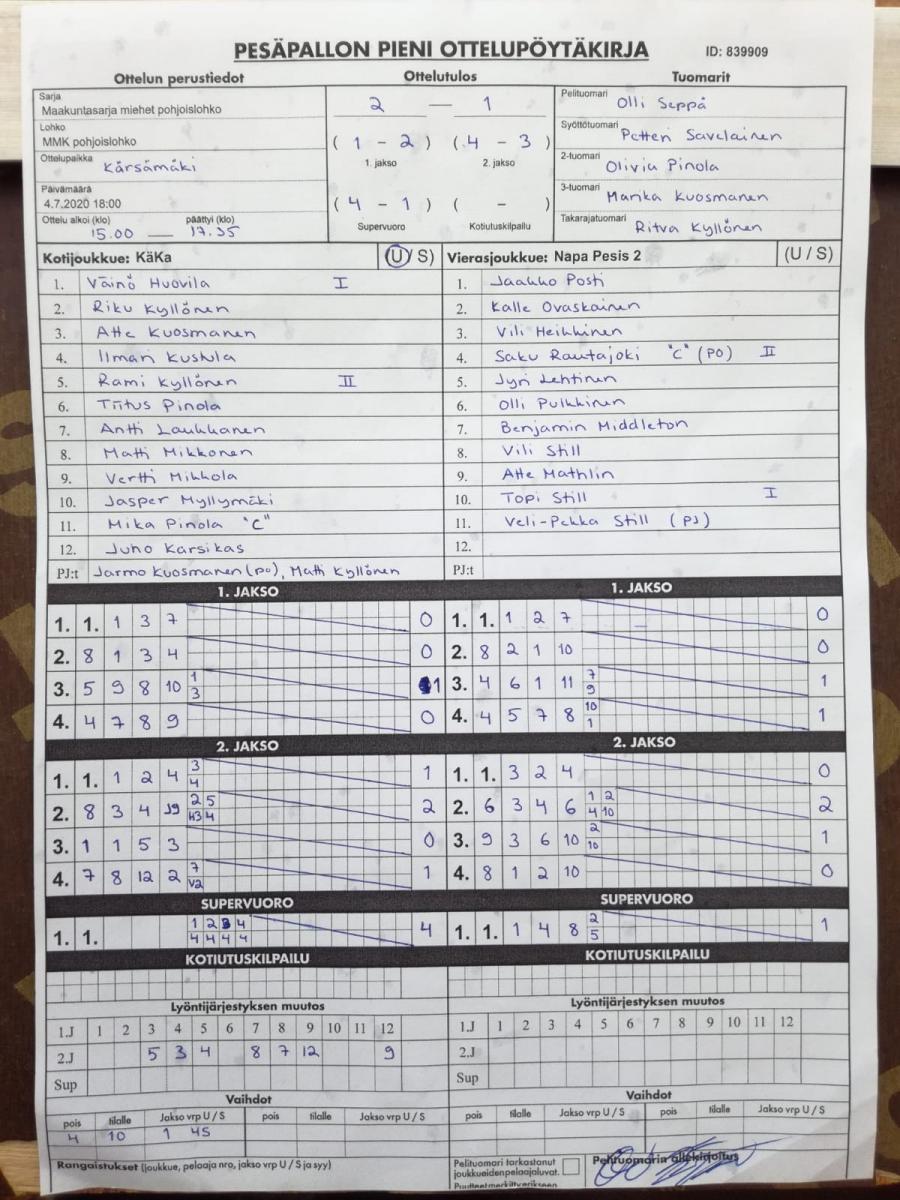 PESÄPALLON PIENI OTTELUPÖYTÄKIRJA ID: 839909
Ottelun perustiedot Ottelutulos Tuomarit
Sarja
Maakuntasarja miehet pohjoislohko
Lohko
MMK pohjoislohko
Ottelupaikka
Kärsämäki
Päivämäärä
4.7.2020 18:00
Ottelu alkoi (klo) päättyi (klo)
15.00 — 17.35
2 — 1
( 1 - 2 ) ( 4 - 3 )
1. jakso 2. jakso
( 4 - 1 ) ( - )
Supervuoro Kotiutuskilpailu
Pelituomari Olli Seppä
Syöttötuomari Petteri Savelainen
2-tuomari Olivia Pinola
3-tuomari Marika Kuosmanen
Takarajatuomari Ritva Kyllönen
Kotijoukkue: KäKa (U / S)
1. Väinö Huovila I
2. Riku Kyllönen
3. Atte Kuosmanen
4. Ilmari Kustula
5. Rami Kyllönen II
6. Tiitus Pinola
7. Antti Laukkanen
8. Matti Mikkonen
9. Vertti Mikkola
10. Jasper Myllymäki
11. Mika Pinola "C"
12. Juho Karsikas
PJ:t Jarmo Kuosmanen (PO), Matti Kyllönen
Vierasjoukkue: Napa Pesis 2 (U / S)
1. Jaakko Posti
2. Kalle Ovaskainen
3. Vili Heikkinen
4. Saku Rautajoki "C" (PO) II
5. Jyri Lehtinen
6. Olli Pulkkinen
7. Benjamin Middleton
8. Vili Still
9. Atte Mathlin
10. Topi Still I
11. Veli-Pekka Still (PJ)
12.
PJ:t
1. JAKSO
1. 1. 1 3 7 0
2. 8 1 3 4 0
3. 5 9 8 10 1 3 1
4. 4 7 8 9 0
1. JAKSO
1. 1. 1 2 7 0
2. 8 2 1 10 0
3. 4 6 1 11 7 9 1
4. 4 5 7 8 10 1 1
2. JAKSO
1. 1. 1 2 4 3 4 1
2. 8 3 4 J9 2 5 H3 4 2
3. 1 1 5 3 0
4. 7 8 12 2 7 V2 1
2. JAKSO
1. 1. 3 2 4 0
2. 6 3 4 6 1 2 4 10 2
3. 9 3 6 10 2 10 1
4. 8 1 2 10 0
SUPERVUORO
1. 1. 1 2 3 4 4 4 4 4 4
SUPERVUORO
1. 1. 1 4 8 2 5 1
KOTIUTUSKILPAILU
KOTIUTUSKILPAILU
Lyöntijärjestyksen muutos
1.J 1 2 3 4 5 6 7 8 9 10 11 12
2.J 5 3 4 8 7 12 9
Sup
Lyöntijärjestyksen muutos
1.J 1 2 3 4 5 6 7 8 9 10 11 12
2.J
Sup
Vaihdot
pois tilalle Jakso vrp U / S pois tilalle Jakso vrp U / S
4 10 1 4S
Vaihdot
pois tilalle Jakso vrp U / S pois tilalle Jakso vrp U / S
Rangaistukset (joukkue, pelaaja nro, jakso vrp U / S ja syy)
Pelituomari tarkastanut
joukkueidenpelaajaluvat.
Puutteet merkittävä
Pelituomarin allekirjoitus